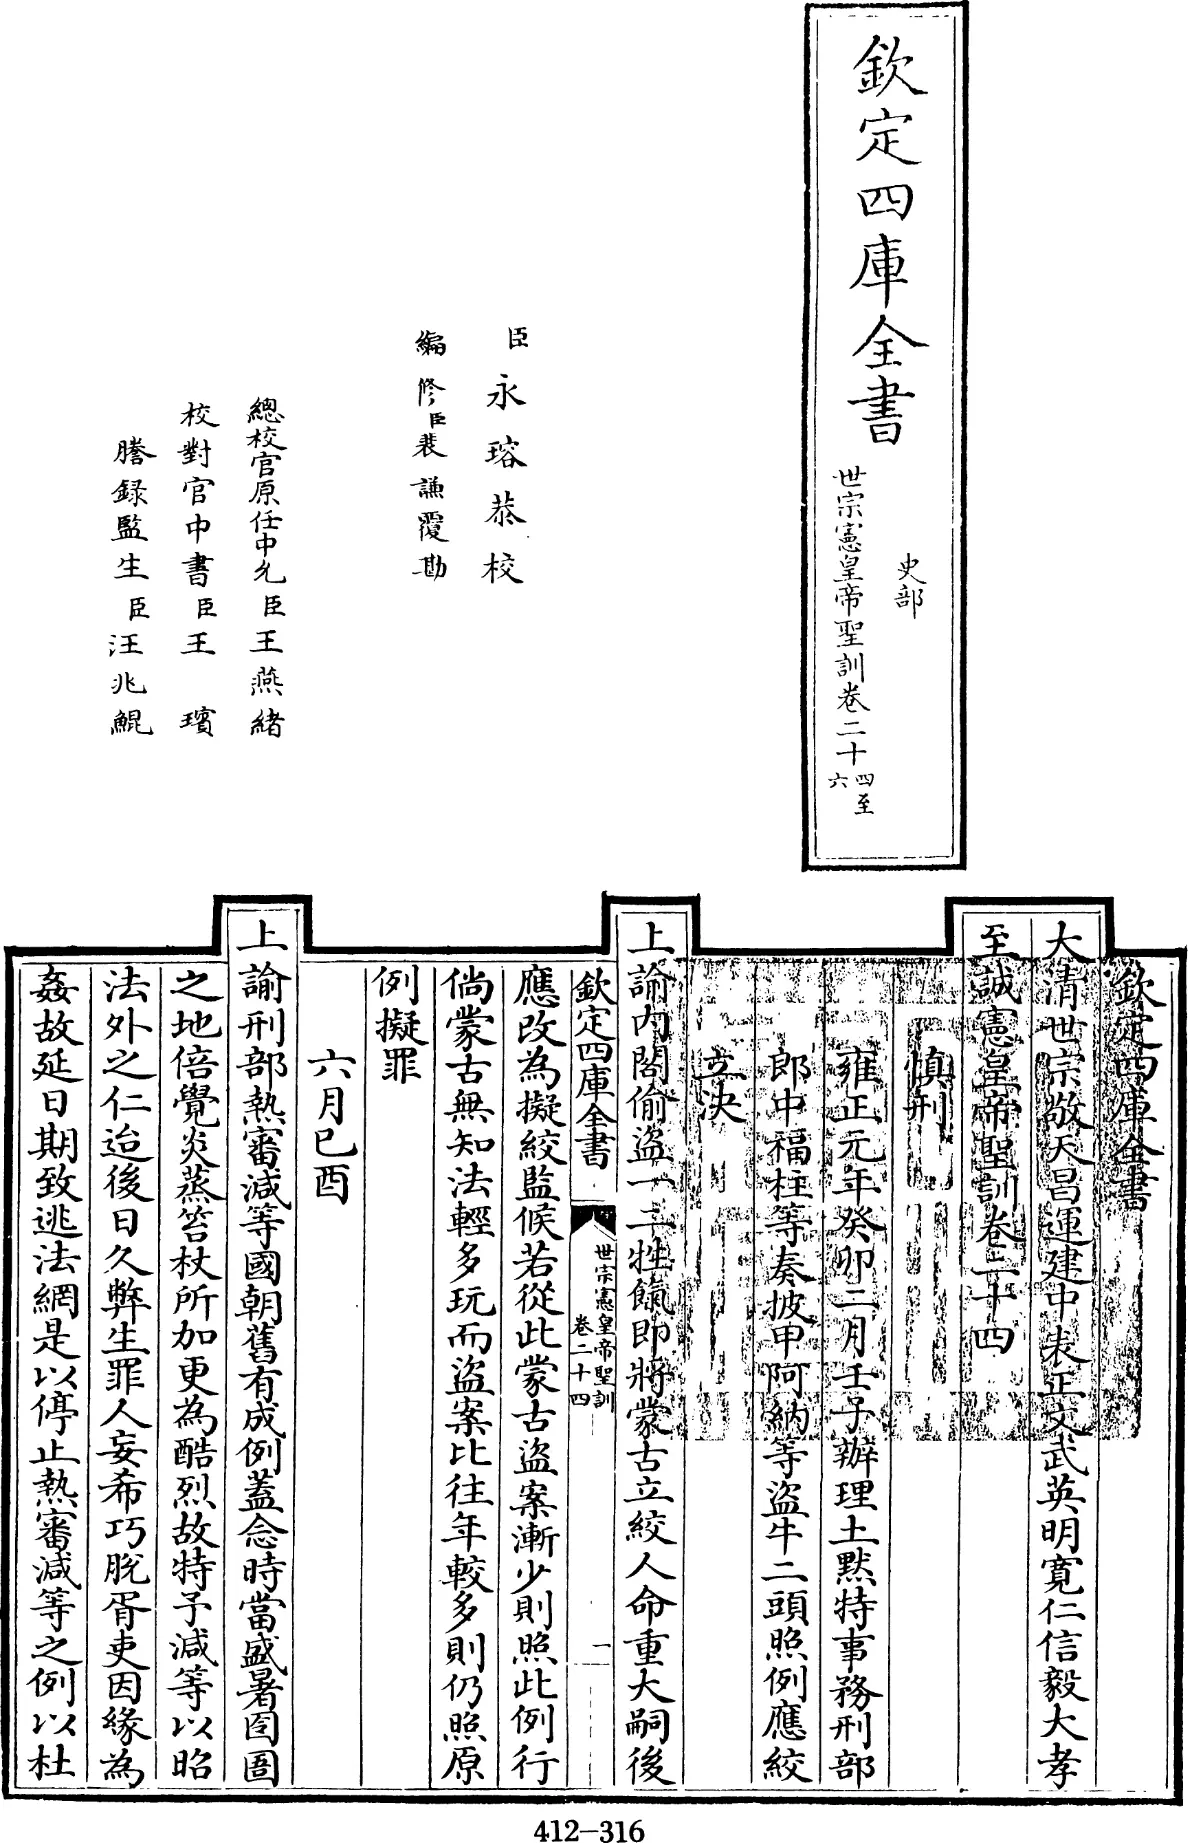 欽定四庫全書
史部
世宗憲皇帝聖訓卷二十四至六
臣永瑢恭校
編修臣裴謙覆勘
總校官原任中允臣王燕緒
校對官中書臣王璸
謄錄監生臣汪兆鯤
欽定四庫全書
大清世宗敬天昌運建中表正文武英明寛仁信毅大孝
至誠憲皇帝聖訓卷二十四
慎刑
雍正元年癸卯二月壬子辦理土默特事務刑部
郎中福柱等奏披甲阿納等盜牛二頭照例應絞
立決
上諭内閣偷盜一二牲餼即將蒙古立絞人命重大嗣後
欽定四庫全書
世宗憲皇帝聖訓
卷二十四
一
應改為擬絞監候若從此蒙古盜案漸少則照此例行
倘蒙古無知法輕多玩而盜案比往年較多則仍照原
例擬罪
六月己酉
上諭刑部熱審減等國朝舊有成例蓋念時當盛暑囹圄
之地倍覺炎蒸笞杖所加更為酷烈故特予減等以昭
法外之仁迨後日久弊生罪人妄希巧脫胥吏因緣為
姦故延日期致逃法網是以停止熱審減等之例以杜
412-316